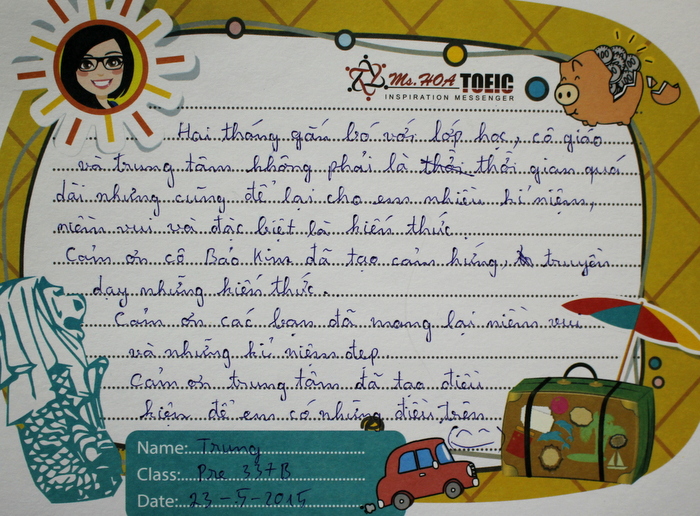 Ms. HOA TOEIC
INSPIRATION MESSENGER
Hai tháng gắn bó với lớp học, cô giáo
và trung tâm không phải là thời gian quá
dài nhưng cũng để lại cho em nhiều kỉ niệm,
niềm vui và đặc biệt là kiến thức.
Cảm ơn cô Bảo Kim đã tạo cảm hứng, truyền
dạy những kiến thức.
Cảm ơn các bạn đã mang lại niềm vui
và những kỉ niệm đẹp
Cảm ơn trung tâm đã tạo điều
kiện để em có những điều trên
Name: Trung
Class: Pre 337B
Date: 23-5-2015